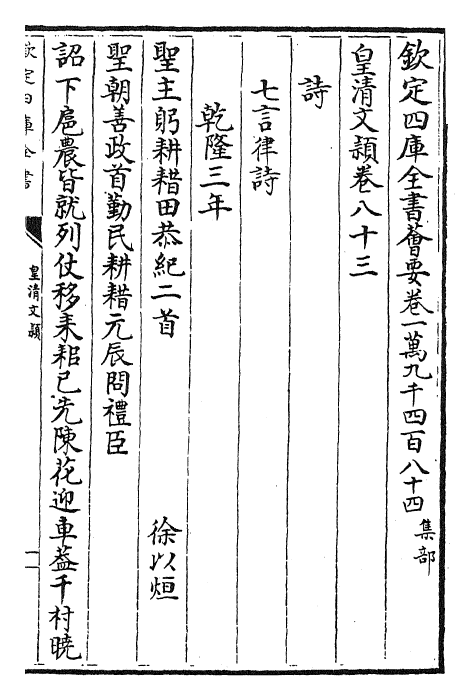 欽定四庫全書薈要卷一萬九千四百八十四 集部
皇清文穎卷八十三
詩
七言律詩
乾隆三年
聖主躬耕耤田恭紀二首 徐以烜
聖朝善政首勤民耕耤元辰問禮臣
詔下扈農皆就列仗移耒耜已先陳花迎車葢千村曉
欽定四庫全書
皇清文穎
一